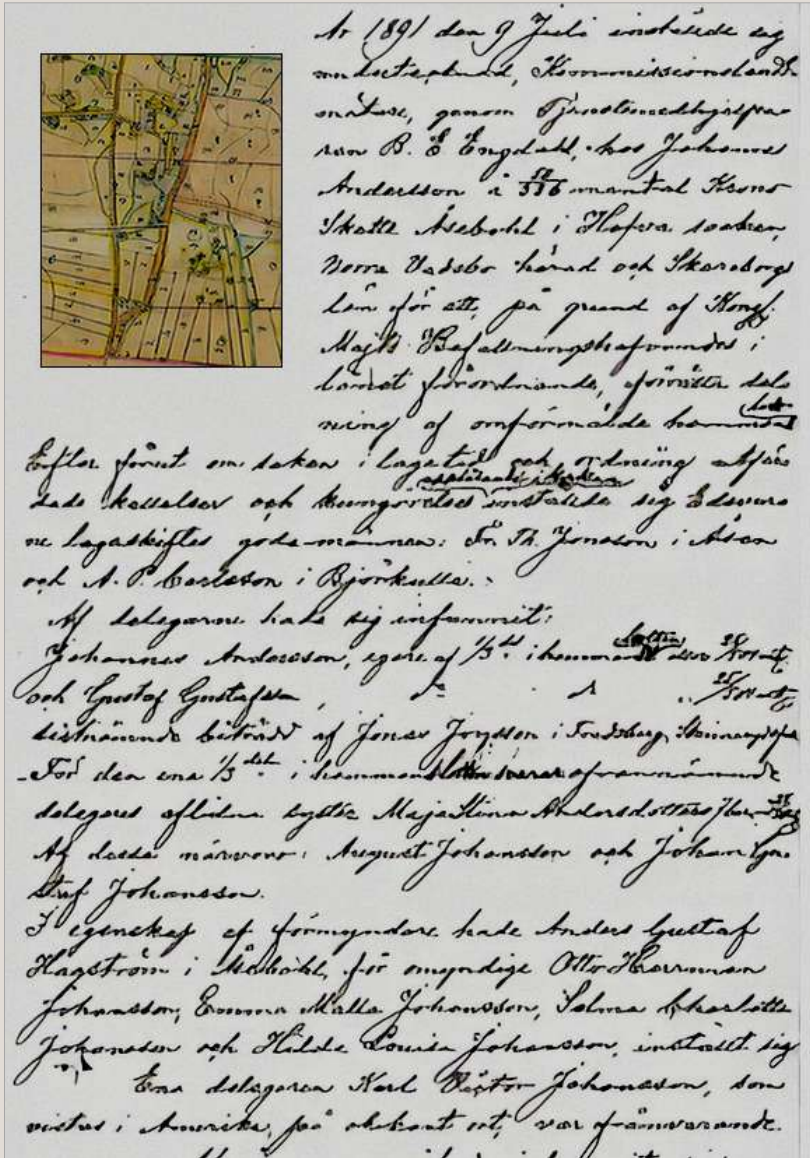 År 1891 den 9 Juli instälde sig
undertecknad, Kommissionslandt-
mätare, genom Tjenstemedhjelpa-
ren B. E Engdahl, hos Johannes
Andersson i mantal Krono
Skatte Åsebohl i Hofva socken,
Norra Vadsbo härad och Skaraborgs
län för att, på grund af Kongl.
Majts Befallningshafvandes i
länet förordnande, förrätta del-
ning af omförmälde
Efter förut om saken i lagatid och ordning utfär
dade kallelser och kungörelser instälde sig Edsvur
ne lagaskiftes gode männen: Fr. Th. Jonsson i Åsen
och A. P. Carlsson i Björkulla.
Af delegarne hade sig infunnit:
Johannes Andersson, egare af 1/3 del i
och Gustaf Gustafsson, d:o d:o
sistnämnde biträdd af Jonas Jonsson i Fredsberg,
För den ena 1/3 del i svarar ofvannämnde
delegares aflidna syster Maja Stina Andersdotters
Af dessa närvoro: August Johansson och Johan Gu-
staf Johansson.
I egenskap af förmyndare hade Anders Gustaf
Hagström i Åsebohl, för omyndige Otto Herrman
Johansson, Emma Malla Johansson, Selma Charlotta
Johansson och Hilda Lovisa Johansson, instält sig
Ena delegaren Karl Victor Johansson, som
vistas i Amerika, på okänt ort, var frånvarande.